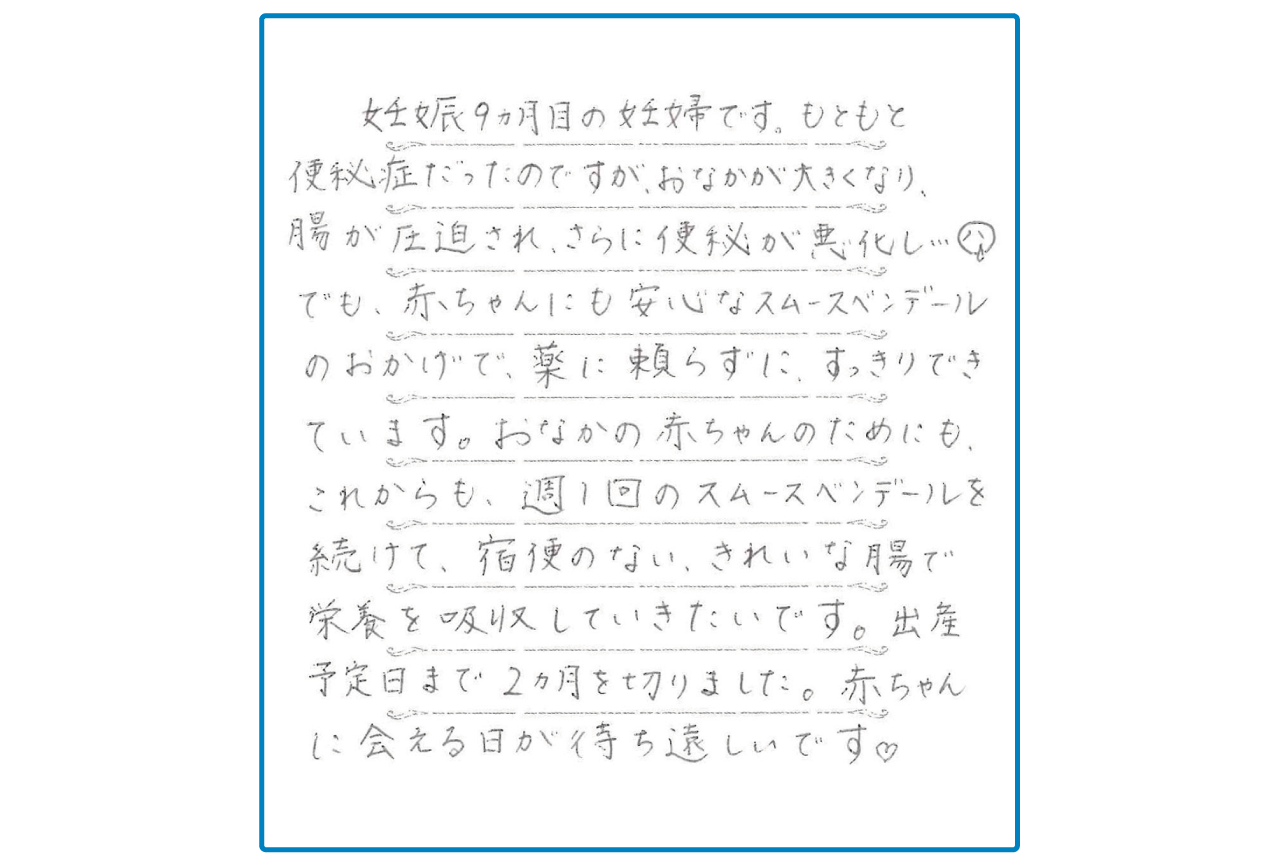 妊娠9ヵ月目の妊婦です。もともと
便秘症だったのですが、おなかが大きくなり、
腸が圧迫され、さらに便秘が悪化し…
でも、赤ちゃんにも安心なスムースベンデール
のおかげで、薬に頼らずに、すっきりでき
ています。おなかの赤ちゃんのためにも、
これからも、週1回のスムースベンデールを
続けて、宿便のない、きれいな腸で
栄養を吸収していきたいです。出産
予定日まで2ヵ月を切りました。赤ちゃん
に会える日が待ち遠しいです♡